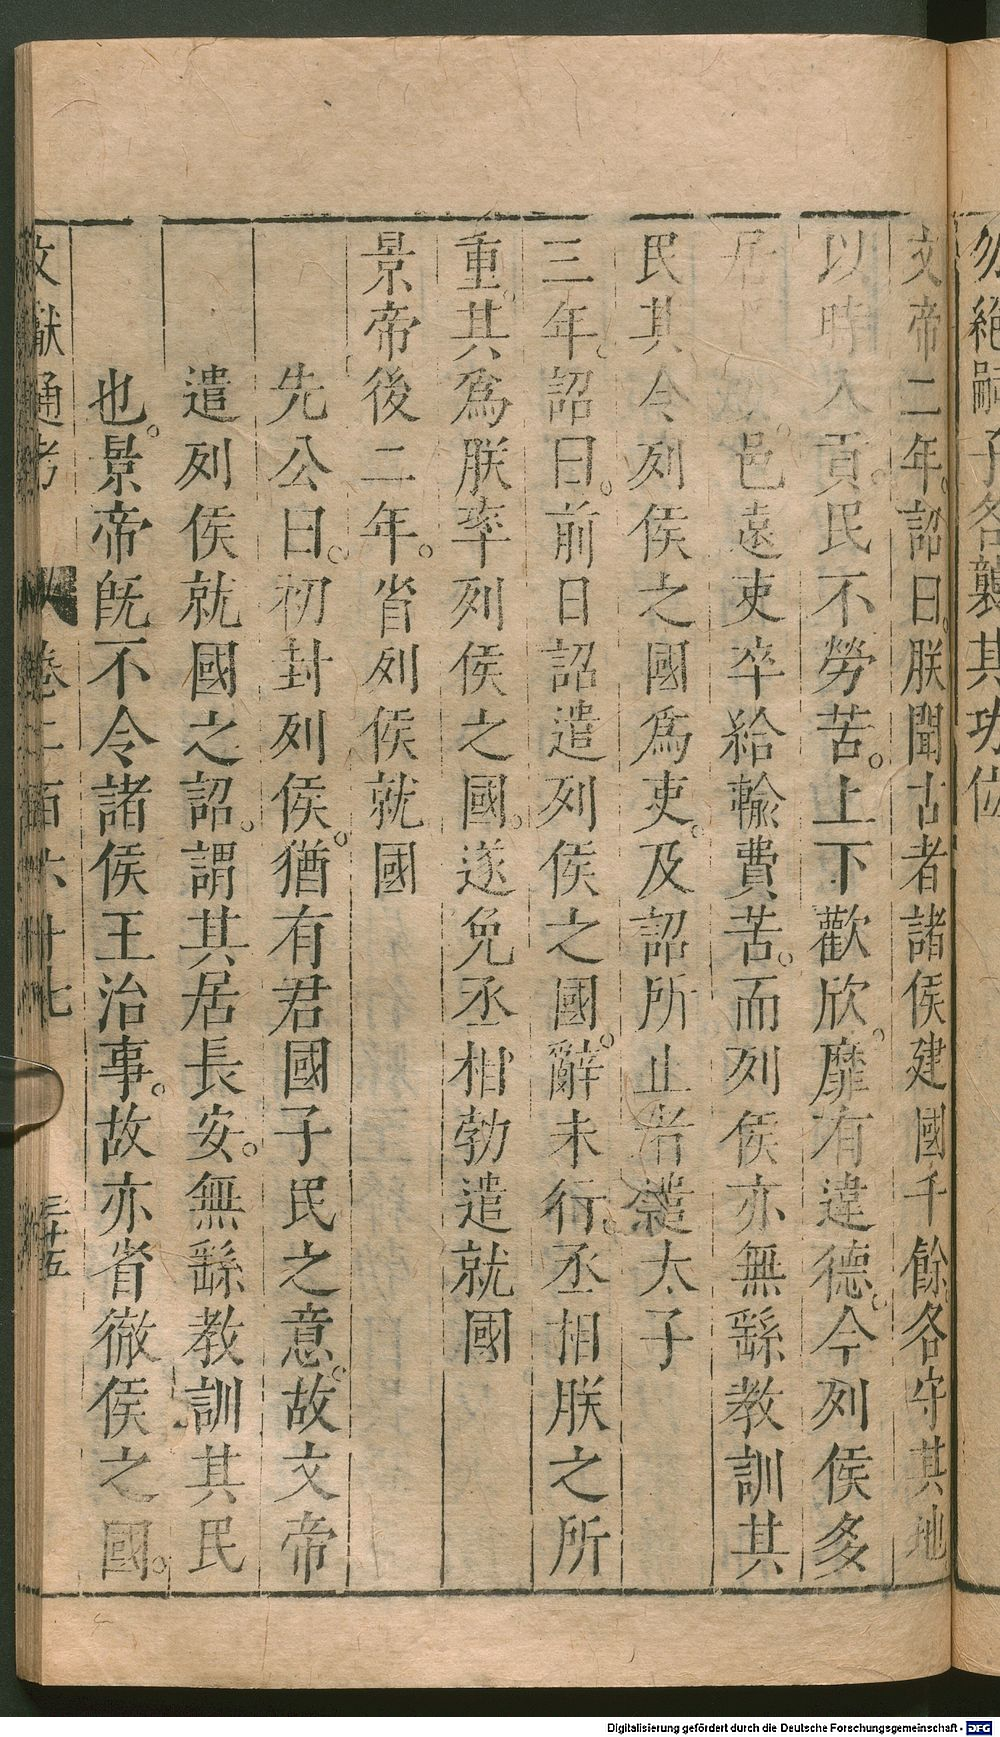 絕嗣子各襲其功位
文帝二年。詔曰。朕聞古者諸侯建國千餘。各守其地
以時入貢。民不勞苦。上下歡欣。靡有違德。今列侯多
居 邑遠。吏卒給輸費苦。而列侯亦無繇教訓其
民其令列侯之國爲吏。及詔所止者遣太子
三年。詔曰。前日詔遣列侯之國。辭未行。丞相朕之所
重。其爲朕率列侯之國。遂免丞相勃遣就國
景帝後二年。省列侯就國
先公曰。初封列侯。猶有君國子民之意。故文帝
遣列侯就國之詔。謂其居長安。無繇教訓其民
也。景帝旣不令諸侯王治事。故亦省徹侯之國。
文獻通考 卷二百六十七 三十五
Digitalisierung gefördert durch die Deutsche Forschungsgemeinschaft - DFG